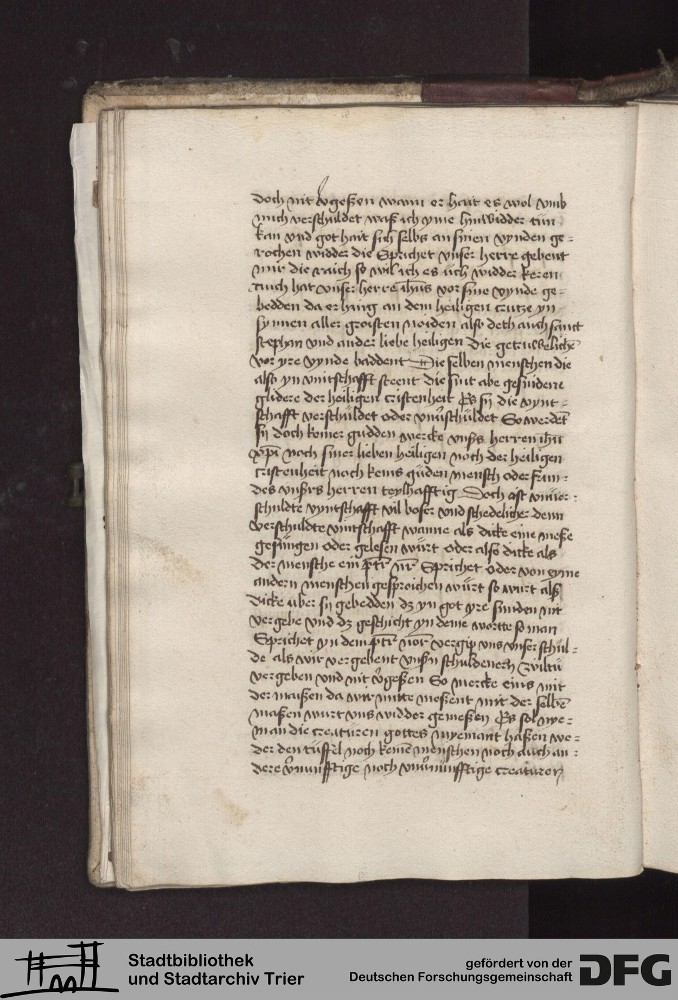 doch nit v̾geßen wann er hait es wol vmb
mich verschuldet waß ich yme hinwidder tun
kan vnd got hait sich selbs an sinen vynden ge=
rochen widder die Sprichet vnser herre gebent
mir die raich so wil ich es uch widder keren
Auch hat vnser herre ih̄us vor sine vynde ge=
bedden da er hing an dem heiligen crutze yn
synnen aller groisten noiden also deth auch sanct
stephan vnd ander liebe heiligen die getruwelichē
vor yre vynde baddent Die selben menschen die
also yn vintschafft steent die sint abe gesniden
glidere der heiligen cristenheit Es sij die vynt=
schafft verschuldet oder vnu̾schuldet So werdēt
sij doch keiner gudden wercke vnß̄s herren ih̄u
xp̄i noch siner lieben heiligen noch der heiligen
cristenheit noch keins guden mensch oder frun=
des vnßrs herren teylhafftig Doch ist vnuer=
schuldte vyntschafft vil boser vnd schedelicher denn
verschuldte vintschafft wanne als dicke eine meße
gesungen oder gelesen wurt oder also dicke als
der mensche ein pr̄ nr̄ Sprichet oder von eyme
andern menschen gesproichen wurt so wurt als
dicke uber sij gebedden dz yn got yre sunden nit
vergebe vnd dz geschicht yn deme wortte so man
Sprichet yn dem pr̄ nor̄ vergip vns vnser schul=
de als wir vergebent vnsn̄ schuldenern
vergeben vnd nit v̾geßen So mercke eins mit
der maißen da wir mitte meßent mit der selbē
maßen wurt vns widder gemeßen Es sol nye=
man die creaturen gottes nyemant haßen we=
der den tuffel noch keinē menschen noch auch an=
dere v̾nunfftige noch vnu̾nunfftige creaturen
Stadtbibliothek
und Stadtarchiv Trier
gefördert von der
Deutschen Forschungsgemeinschaft
DFG